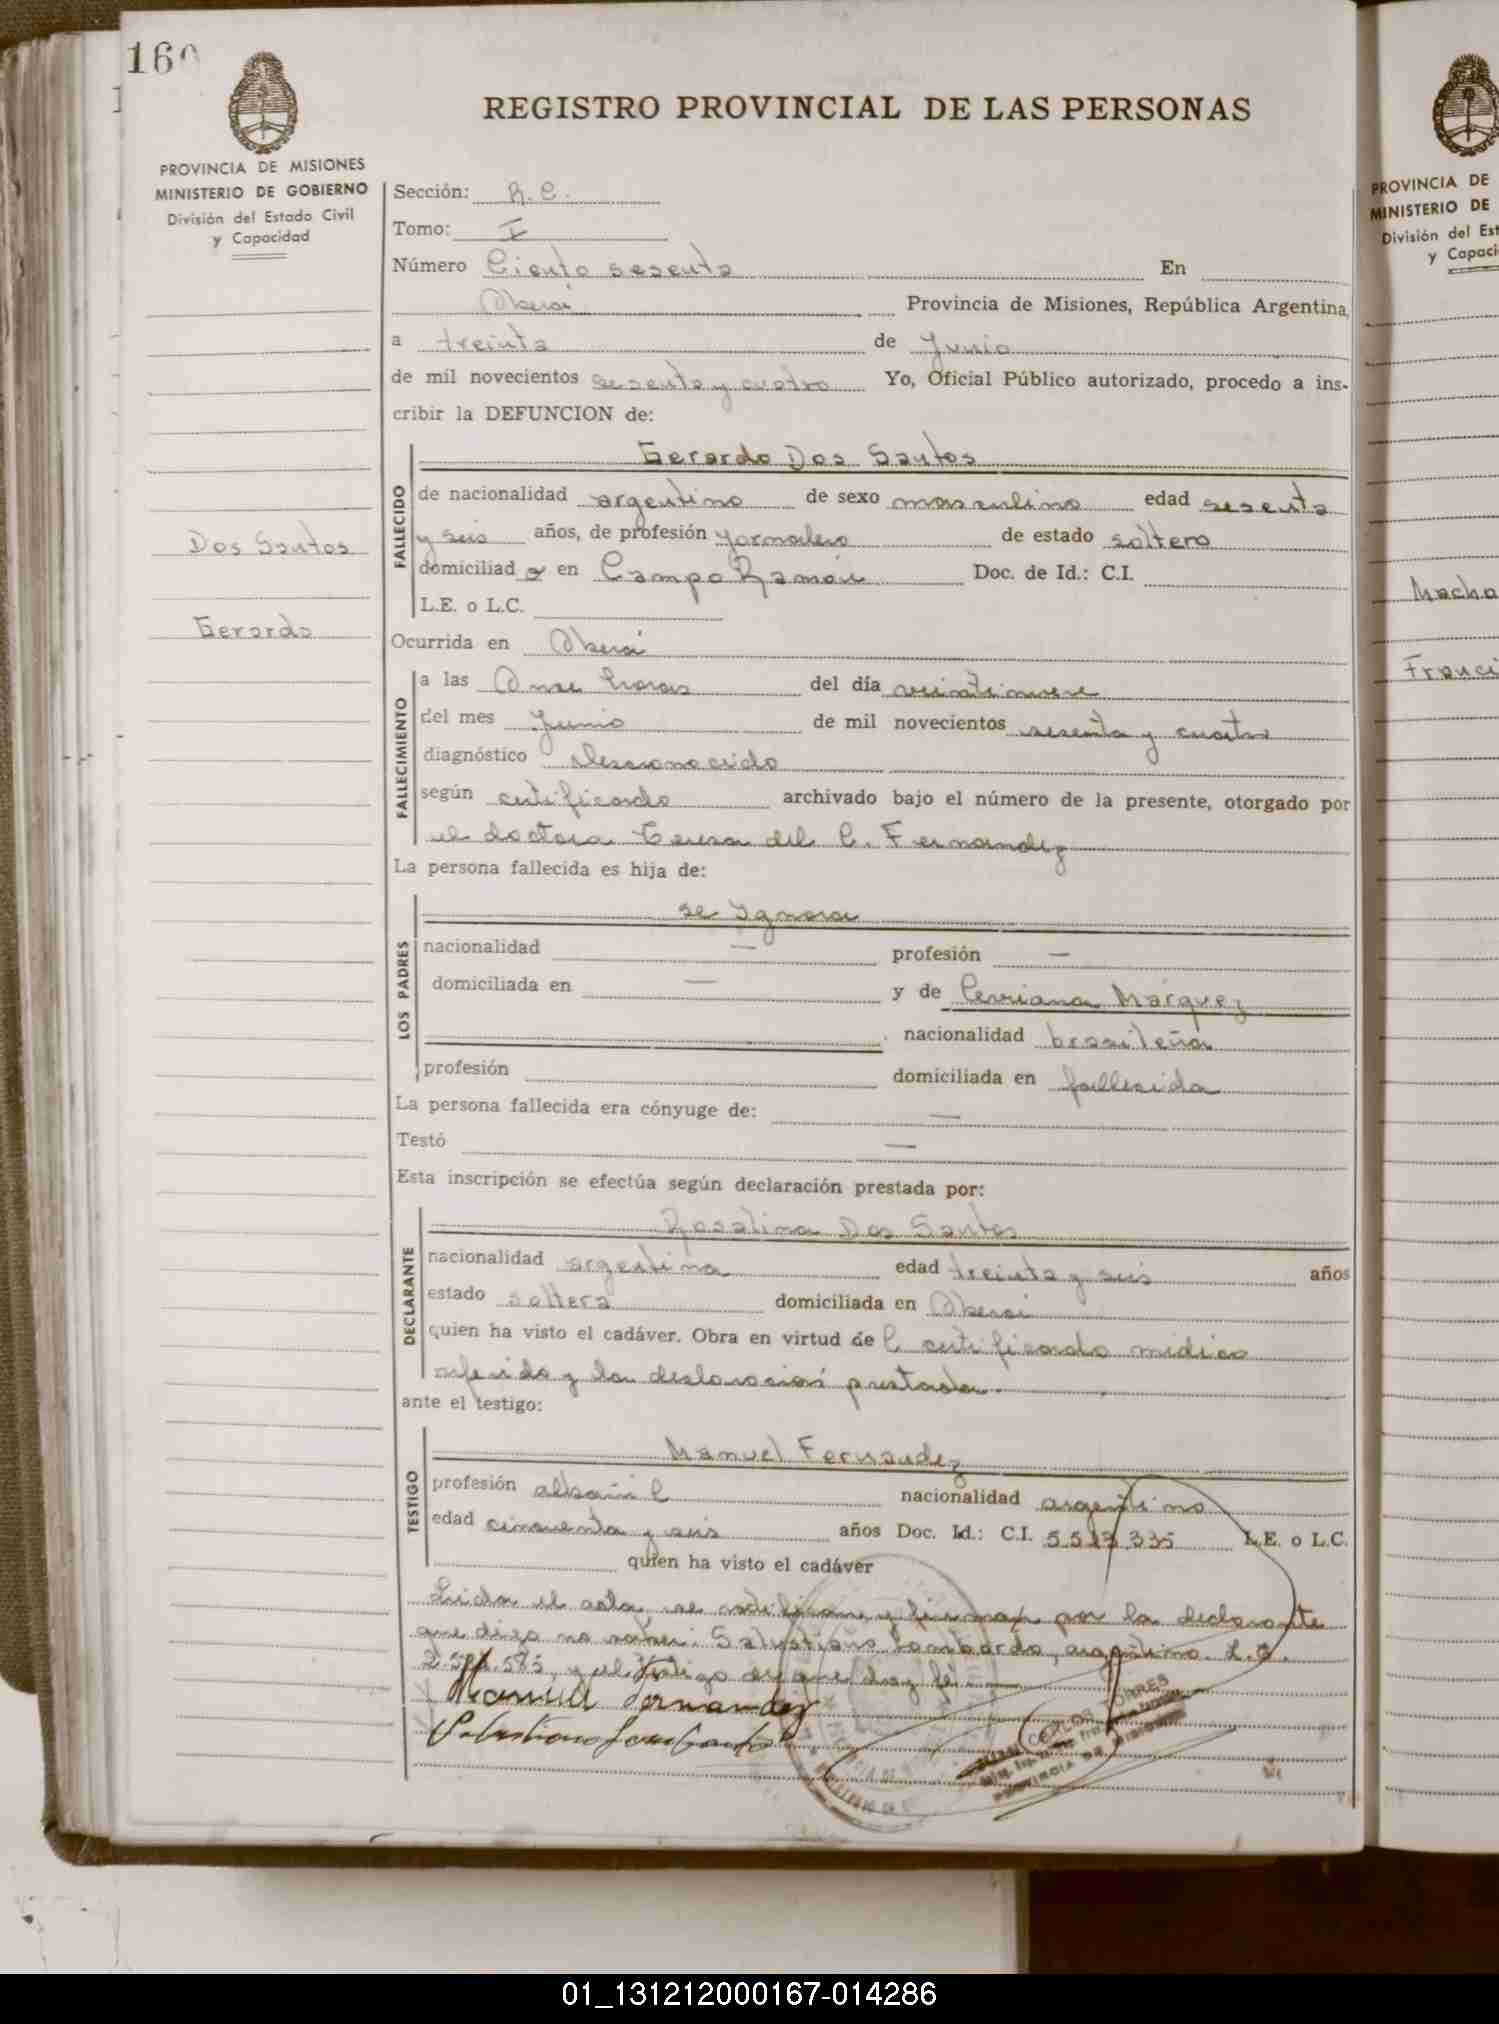 160
REGISTRO PROVINCIAL DE LAS PERSONAS
PROVINCIA DE MISIONES
MINISTERIO DE GOBIERNO
División del Estado Civil
y Capacidad
Sección: R.C.
Tomo: I
Número Ciento sesenta En
Oberá Provincia de Misiones, República Argentina,
a treinta de Junio
de mil novecientos sesenta y cuatro Yo, Oficial Público autorizado, procedo a ins-
cribir la DEFUNCION de:
Gerardo Dos Santos
FALLECIDO
de nacionalidad argentino de sexo masculino edad sesenta
y seis años, de profesión jornalero de estado soltero
domiciliad o en Campo Ramón Doc. de Id.: C.I.
L.E. o L.C.
Dos Santos
Gerardo
Ocurrida en Oberá
FALLECIMIENTO
a las Onse horas del día veintinueve
del mes Junio de mil novecientos sesenta y cuatro
diagnóstico desconocido
según certificado archivado bajo el número de la presente, otorgado por
el doctora Teresa del C. Fernandez
La persona fallecida es hija de:
LOS PADRES
se Ignora
nacionalidad — profesión —
domiciliada en — y de Marquez
nacionalidad brasileña
profesión domiciliada en fallecida
La persona fallecida era cónyuge de: —
Testó —
Esta inscripción se efectúa según declaración prestada por:
DECLARANTE
Rosalina Dos Santos
nacionalidad argentina edad treinta y seis años
estado soltera domiciliada en Oberá
quien ha visto el cadáver. Obra en virtud de l certificado médico
referido y la declaración prestada.
ante el testigo:
TESTIGO
Manuel Fernandez
profesión albañil nacionalidad argentino
edad cincuenta y seis años Doc. Id.: C.I. L.E. o L.C.
quien ha visto el cadáver
Leida el acta, se ratifican y firman por la declarante
que dijo no saber: Salustiano Lombardo, argentino. L.E.
y el testigo de que doy fé.
Manuel Fernandez
Salustiano Lombardo
CARLOS TORRES
PROVINCIA DE MISIONES
PROVINCIA DE
MINISTERIO DE
División del Est
y Capaci
Macha
Franci
01_131212000167-014286